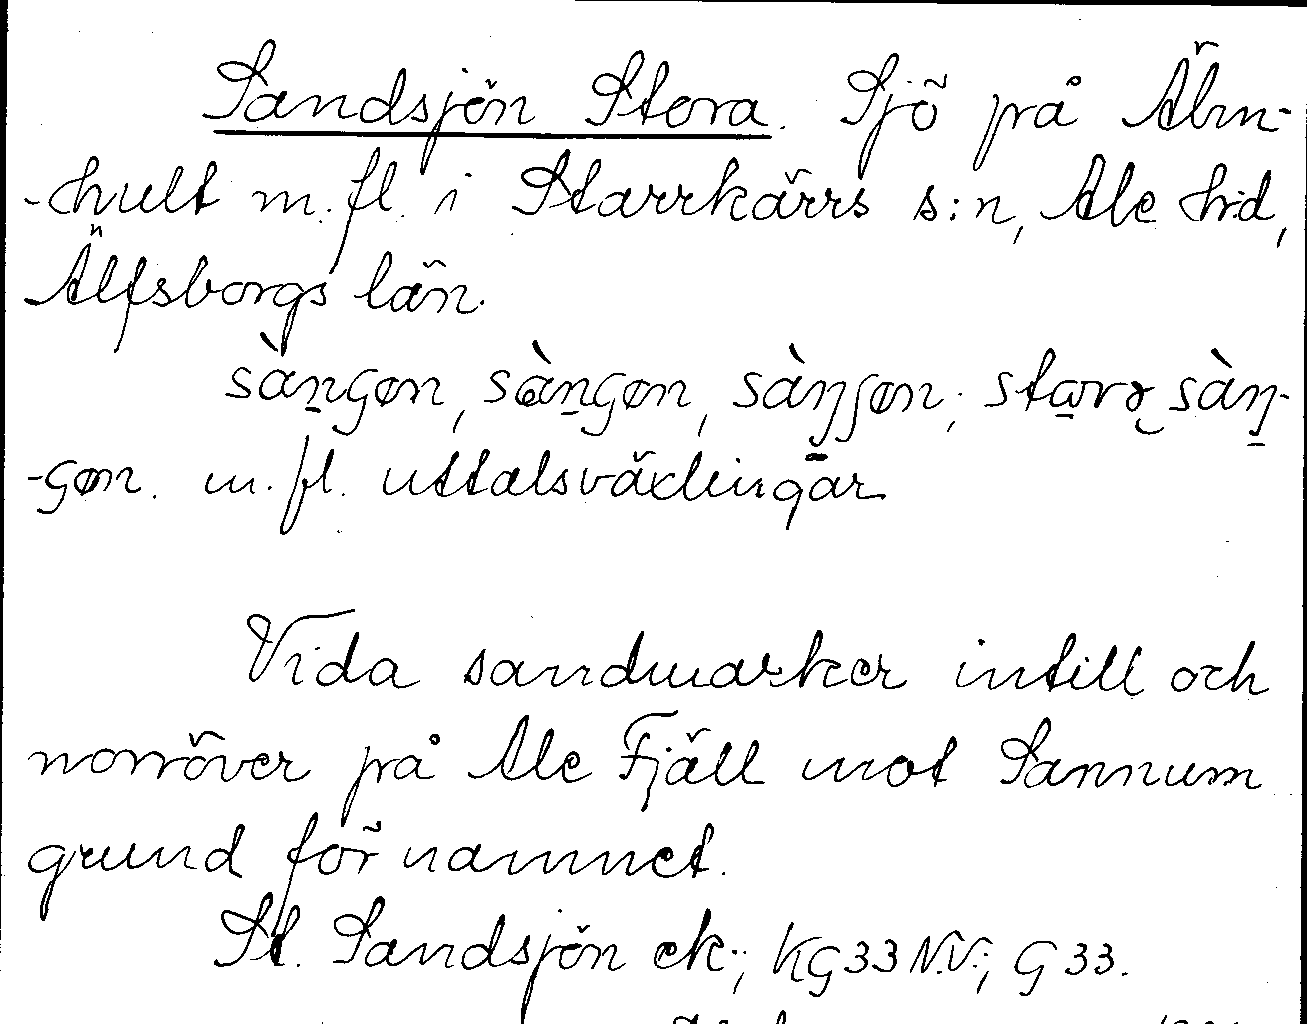 Sandsjön Stora. Sjö på Älm-
-hult m.fl. i Starrkärrs s:n, Ale hd,
Älfsborgs län.
sàn̠ɕøn, sàn̠ɕøn, sàŋʃøn; sta̠rə sàŋ̠-
-ɕøn. m.fl. uttalsväxlingar
Vida sandmarker intill och
norröver på Ale Fjäll mot Sannum
grund för namnet.
St. Sandsjön ek.; KG33 N.V.; G 33.